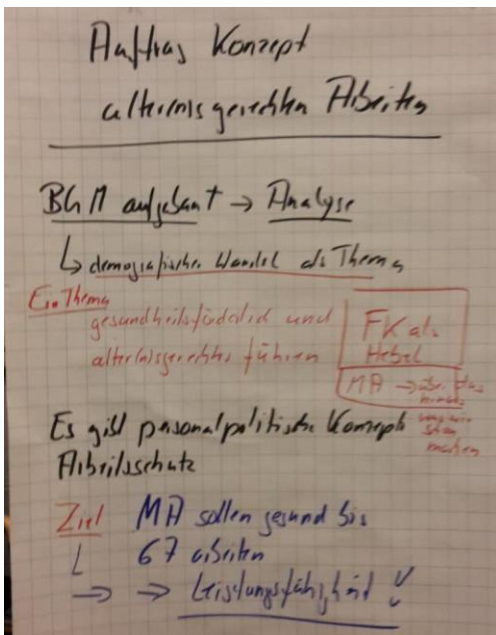 Auftrag Konzept
alter(n)sgerechten Arbeiten
BGM aufgebaut → Analyse
↳ demografischer Wandel als Thema
Ein Thema
gesundheitsförderlich und
alter(n)sgerechtes führen
FK als
Hebel
MA → über das
hinaus
was wir
schon
machen
Es gibt personalpolitische Konzepte
Arbeitsschutz
Ziel MA sollen gesund bis
67 arbeiten
→ → Leistungsfähigkeit !